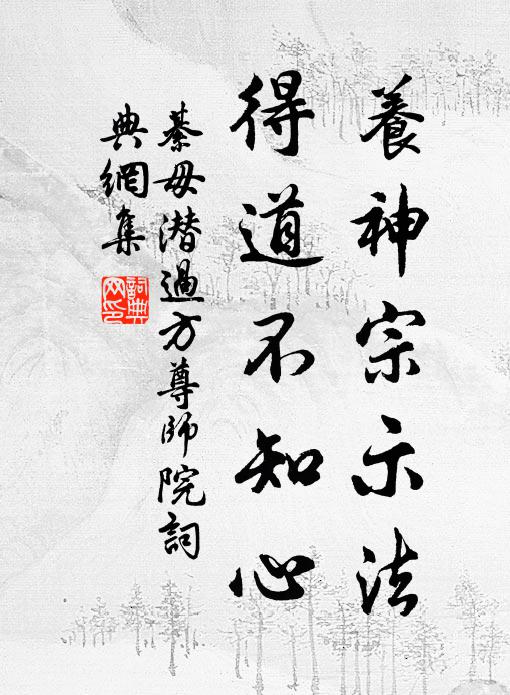 養神宗示法
得道不知心
綦毋潛過方尊師院詞
典網集
詞典
网印